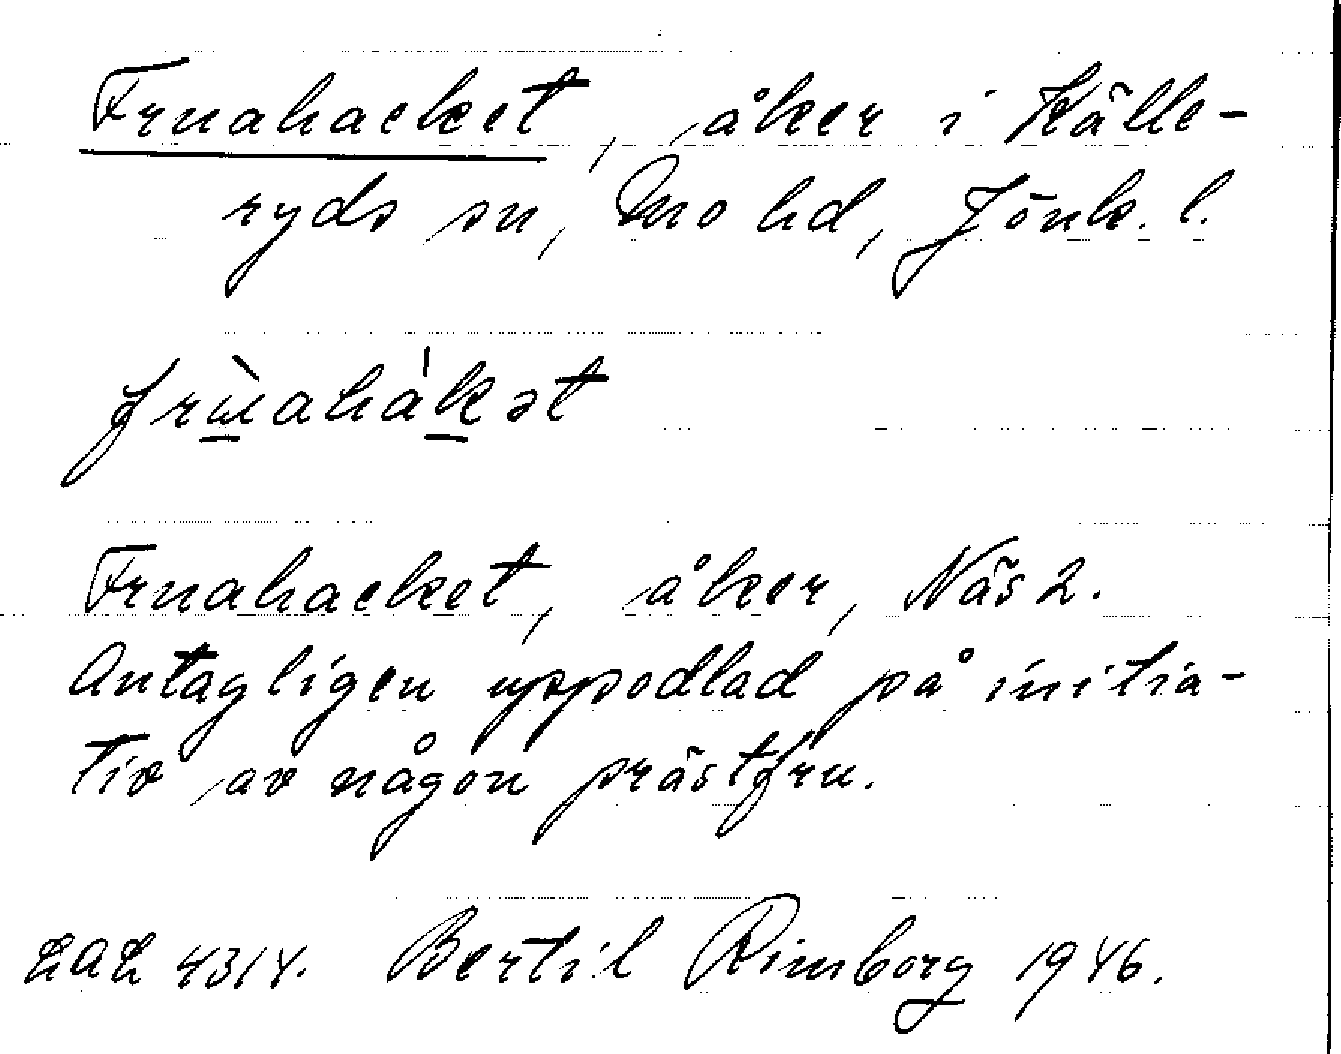 Fruahacket, åker i Källe-
ryds sn, Mo hd, Jönk. l.
frùahákət
Fruahacket, åker, Näs 2.
Antagligen uppodlad på initia-
tiv av någon prästfru.
LAL 4314. Bertil Rimborg 1946.